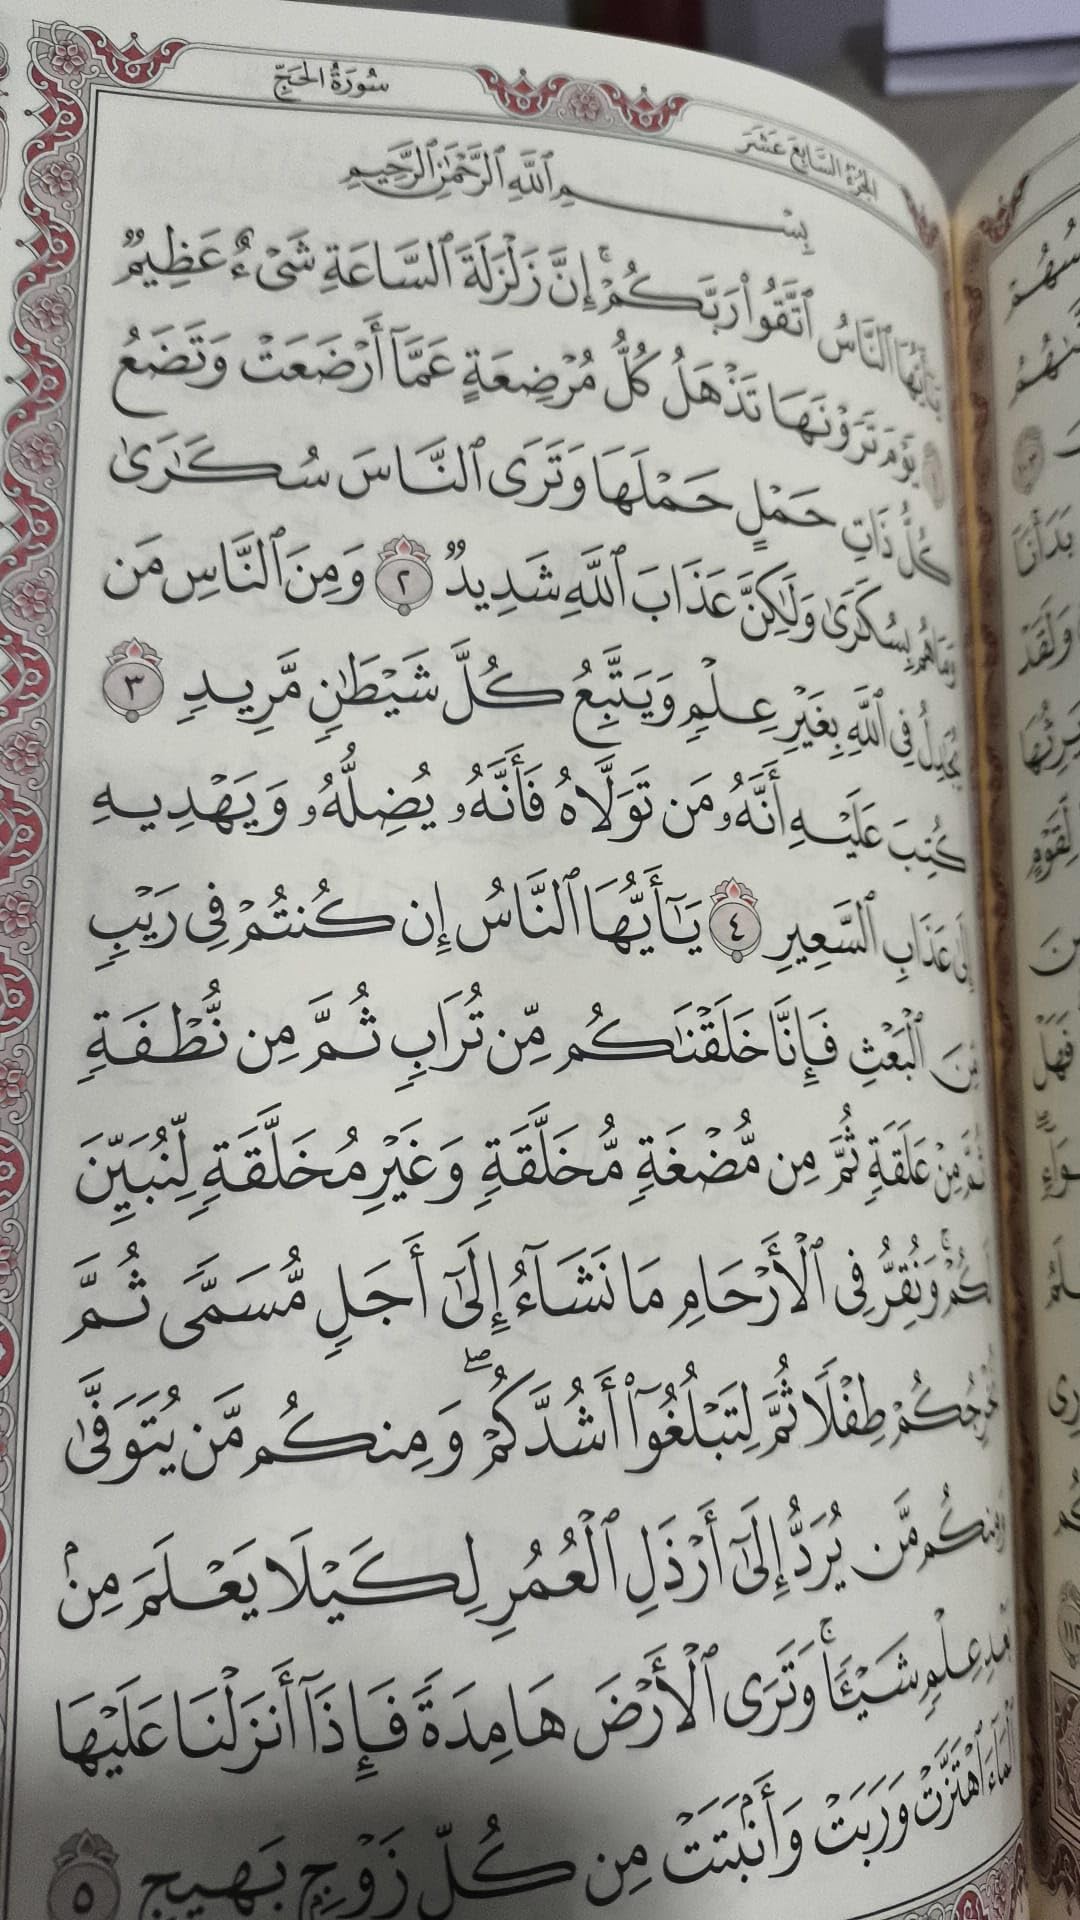 سُورَةُ الحَجِّ
الجُزْءُ السَّابِعَ عَشَرَ
بِسْمِ ٱللَّهِ ٱلرَّحْمَٰنِ ٱلرَّحِيمِ
يَٰٓأَيُّهَا ٱلنَّاسُ ٱتَّقُوا۟ رَبَّكُمْ ۚ إِنَّ زَلْزَلَةَ ٱلسَّاعَةِ شَىْءٌ عَظِيمٌ
١ يَوْمَ تَرَوْنَهَا تَذْهَلُ كُلُّ مُرْضِعَةٍ عَمَّآ أَرْضَعَتْ وَتَضَعُ
كُلُّ ذَاتِ حَمْلٍ حَمْلَهَا وَتَرَى ٱلنَّاسَ سُكَٰرَىٰ
وَمَا هُم بِسُكَٰرَىٰ وَلَٰكِنَّ عَذَابَ ٱللَّهِ شَدِيدٌ ٢ وَمِنَ ٱلنَّاسِ مَن
يُجَٰدِلُ فِى ٱللَّهِ بِغَيْرِ عِلْمٍ وَيَتَّبِعُ كُلَّ شَيْطَٰنٍ مَّرِيدٍ ٣
كُتِبَ عَلَيْهِ أَنَّهُۥ مَن تَوَلَّاهُ فَأَنَّهُۥ يُضِلُّهُۥ وَيَهْدِيهِ
إِلَىٰ عَذَابِ ٱلسَّعِيرِ ٤ يَٰٓأَيُّهَا ٱلنَّاسُ إِن كُنتُمْ فِى رَيْبٍ
مِّنَ ٱلْبَعْثِ فَإِنَّا خَلَقْنَٰكُم مِّن تُرَابٍ ثُمَّ مِن نُّطْفَةٍ
ثُمَّ مِنْ عَلَقَةٍ ثُمَّ مِن مُّضْغَةٍ مُّخَلَّقَةٍ وَغَيْرِ مُخَلَّقَةٍ لِّنُبَيِّنَ
لَكُمْ ۚ وَنُقِرُّ فِى ٱلْأَرْحَامِ مَا نَشَآءُ إِلَىٰٓ أَجَلٍ مُّسَمًّى ثُمَّ
نُخْرِجُكُمْ طِفْلًا ثُمَّ لِتَبْلُغُوٓا۟ أَشُدَّكُمْ ۖ وَمِنكُم مَّن يُتَوَفَّىٰ
وَمِنكُم مَّن يُرَدُّ إِلَىٰٓ أَرْذَلِ ٱلْعُمُرِ لِكَيْلَا يَعْلَمَ مِنۢ
بَعْدِ عِلْمٍ شَيْـًٔا ۚ وَتَرَى ٱلْأَرْضَ هَامِدَةً فَإِذَآ أَنزَلْنَا عَلَيْهَا
ٱلْمَآءَ ٱهْتَزَّتْ وَرَبَتْ وَأَنۢبَتَتْ مِن كُلِّ زَوْجٍۭ بَهِيجٍ ٥
بَدَأْنَا
وَلَقَدْ
لِّقَوْمٍ